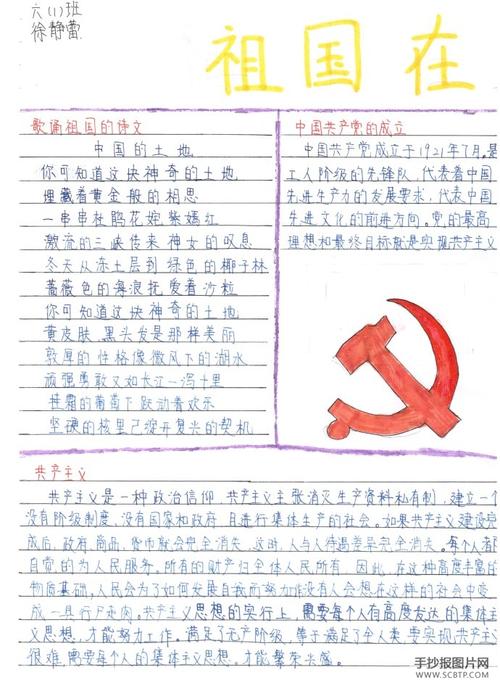 六(1)班
徐静蕾
祖国在
歌诵祖国的诗文
中国的土地
你可知道这块神奇的土地
埋藏着黄金般的相思
一串串杜鹃花姹紫嫣红
激流的三峡传来神女的叹息
冬天从冻土层到绿色的椰子林
蔷薇色的海浪抚爱着沙粒
你可知道这块神奇的土地
黄皮肤,黑头发是那样美丽
敦厚的性格像微风下的湖水
顽强勇敢又如长江一泻千里
挂霜的葡萄下跃动着欢乐
坚硬的核里已绽开复兴的契机
中国共产党的成立
中国共产党成立于1921年7月。是
工人阶级的先锋队,代表着中国
先进生产力的发展要求,代表中国
先进文化的前进方向。党的最高
理想和最终目标就是实现共产主义
共产主义
共产主义是一种政治信仰,共产主义主张消灭生产资料私有制,建立一个
没有阶级制度、没有国家和政府,且进行集体生产的社会。如果共产主义建设完
成后,政府、商品、货币就会完全消失。这时,人与人待遇差异完全消失。每个人都
自觉的为人民服务。所有的财产归全体人民所有,因此,在这种高度丰富的
物质基础,人民会为了如何发展自我而努力工作没有人会想在这样的社会中变
成一具行尸走肉。共产主义思想的实行上,需要每个人有高度发达的集体主
义思想,才能努力工作。满足了无产阶级,等于满足了全人类,要实现共产主义
很难,需要每个人的集体主义思想,才能繁荣兴盛。
手抄报图片网
WWW.SCBTP.COM